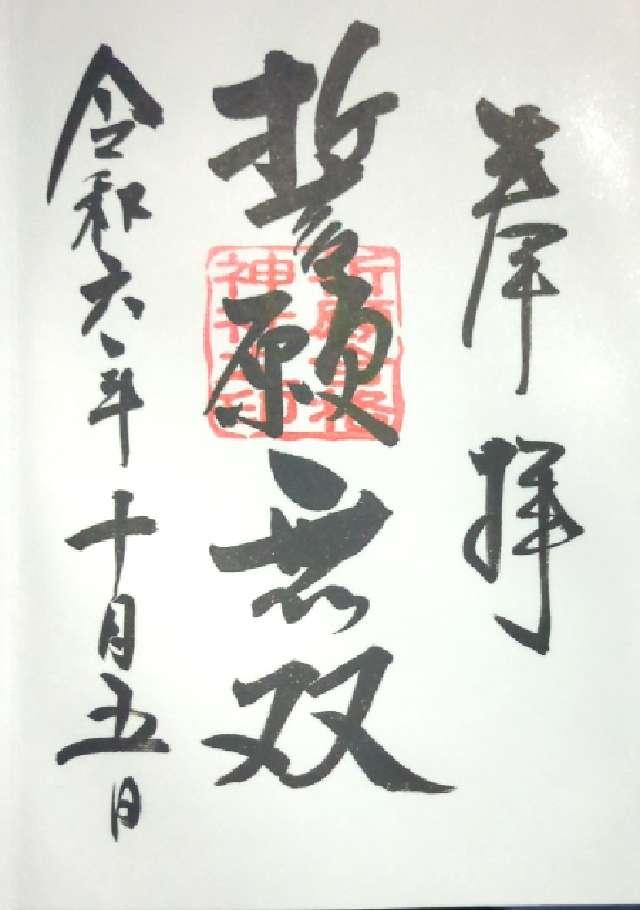 奉拝
誓願無双
令和六年十月五日